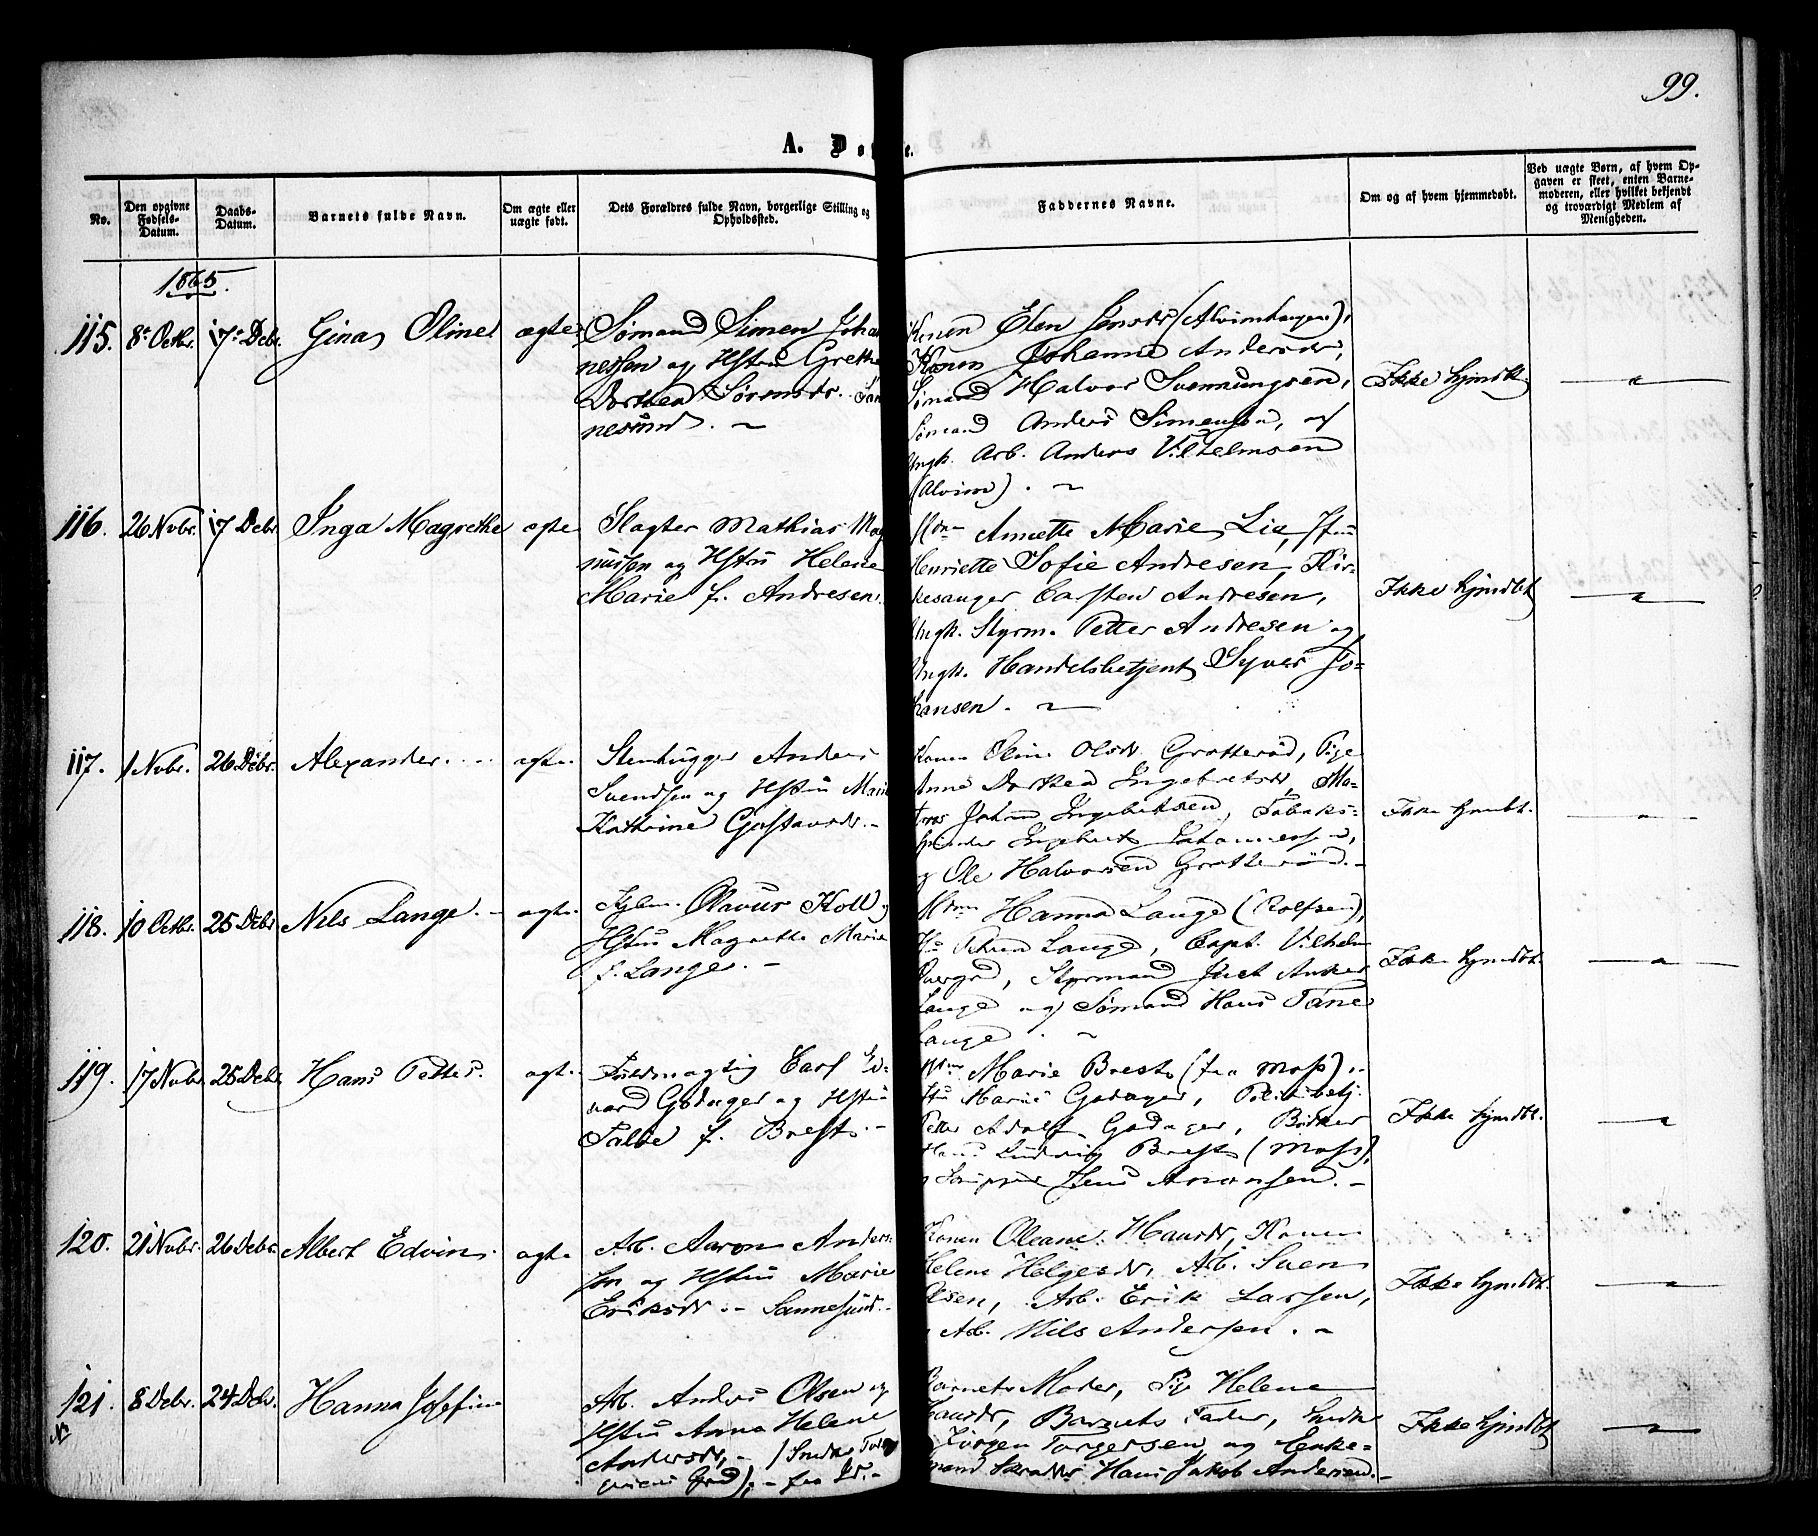 99.
A. Dø e.
No.
Den opgivne Fødsels-Datum.
Daabs-Datum.
Barnets fulde Navn.
Om ægte eller uægte født.
Dets Forældres fulde Navn, borgerlige Stilling og Opholdssted.
Faddernes Navne.
Om og af hvem hjemmedøbt.
Ved uægte Børn, af hvem Op-
gaven er skeet, enten Barne-
moderen, eller hvilket bekjendt
og troværdigt Medlem af
Menigheden.
1865.
115. 8de Octbr. 17de Debr. Gina Oline ægte
Sømand Simen Joha
nessen og Hstru Grethe
Dorthea Sørensdr. San
nesund. —
Konen Elen Jensdr (Alvimhaugen),
Konen Johanne Andersdr,
Sømand Halvor Svennungsen,
Sømand Anders Simensen, og
Ungk. Arb. Anders Vilhelmsen
(Alvim). —
Ikke hjmdbt
116. 26 Nvbr. 17 Debr Inga Magrethe ægte
Slagter Mathias Mag
nussen og Hstru Helene
Marie f. Andresen.
Annette Marie Lie,
Henriette Sofie Andresen, Kir-
kesanger Carsten Andresen,
Ungk. Styrm. Petter Andresen og
Ungk. Handelsbetjent Syver Jo-
hansen. —
Ikke hjmdbt
117. 1 Nvbr. 26 Debr. Alexander. ægte.
Stenhugger Anders
Svendsen og Hstru Marie
Kathrine Gustavsdr. -
Konen Oline Olsdr. Grotterød, Pige
Anne Dorthea Ingebretsdr, Ma-
tros Johan Ingebretsen, Tobaks-
spinder Ingebret Johannessen,
og Ole Halvorsen Grotterød. -
Ikke hjmdbt.
118. 10 Octbr. 25 Debr Nils Lange. - ægte.
Olavus Koll og
Hstru Magrethe Marie
f. Lange. -
Hanna Lange (Rolfsen),
Lange, Capt. Vilhelm
, Styrmand Just Anker
Lange og Sømand Hans
Lange. -
Ikke hjmdbt.
119. 17 Nvbr 25 Debr Hans Petter. ægte.
Fuldmægtig Carl Ed-
vard Godager og Hstru
f. Brest. -
Marie Brest (fra Moss),
Marie Godager, Politibetj.
Petter Adolf Godager, Bødker
Hans Ludvig Brest (Moss),
Jens Aronsen. -
Ikke hjmdbt.
120. 21 Nvbr. 26 Debr. Albert Edvin. ægte
Arb. Aaron Anders
sen og Hstru Marie
Eriksdr. - Sannesund. -
Konen Oleane Hansdr, Konen
Helene Helgesdr, Arb. Sven
Olsen, Arb. Erik Larsen,
Arb. Nils Andersen. -
Ikke hjmdbt.
121. 8 Debr. 24 Debr. Hanna Josefine
Arb. Anders Olsen og
Hstru Anna Helene
Andersdr, -
Gaard), - fra
Barnets Moder, Helene
Hansdr, Barnets Fader, Snedk.
Jørgen Torgersen og Enke-
mand Skrædder Hans Jakob Andersen. -
Ikke hjmdbt